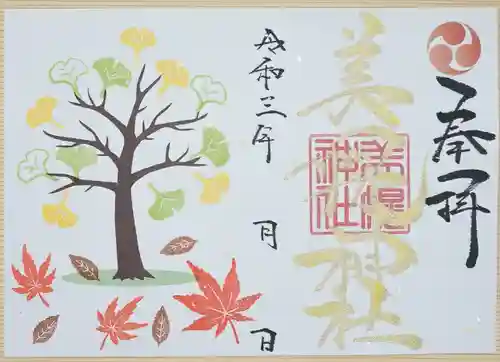 奉拝
美幌神社
美幌
神社
令和三年 月 日